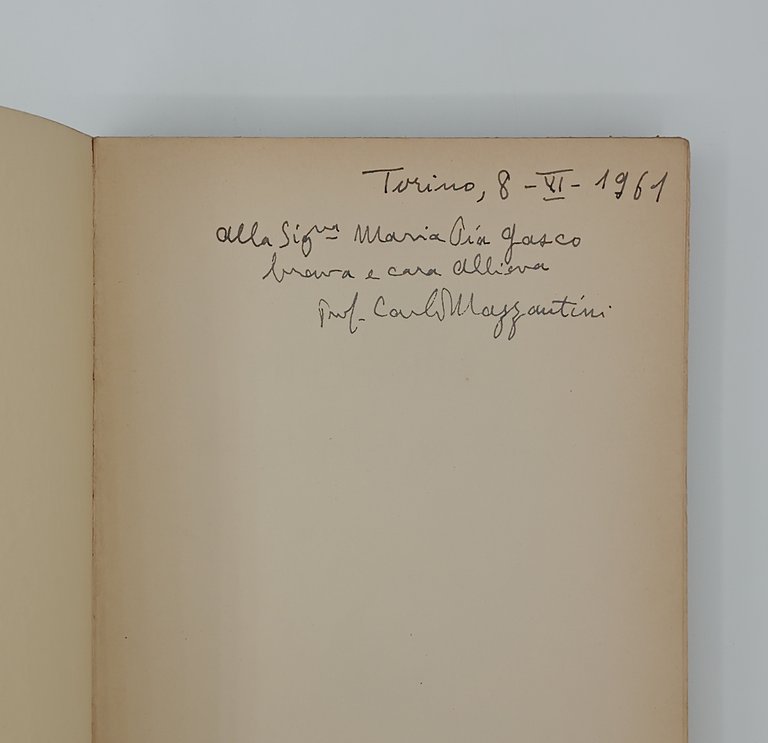 Torino, 8 - VI - 1961
alla Sigⁿᵃ Maria Pia Gasco
brava e cara allieva
Prof. Carlo Mazzantini